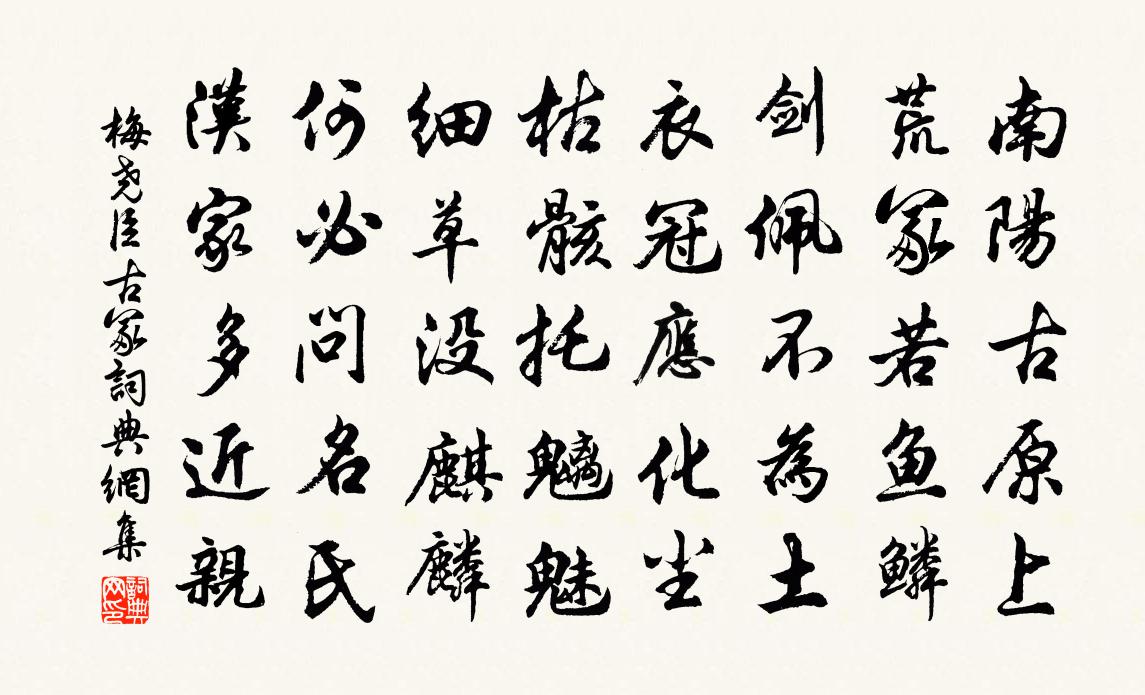 南陽古原上
荒冢若魚鱗
剑佩不為土
衣冠應化尘
枯骸托魑魅
细草没麒麟
何必问名氏
漢家多近親
梅尧臣古冢詞典網集
詞典网印